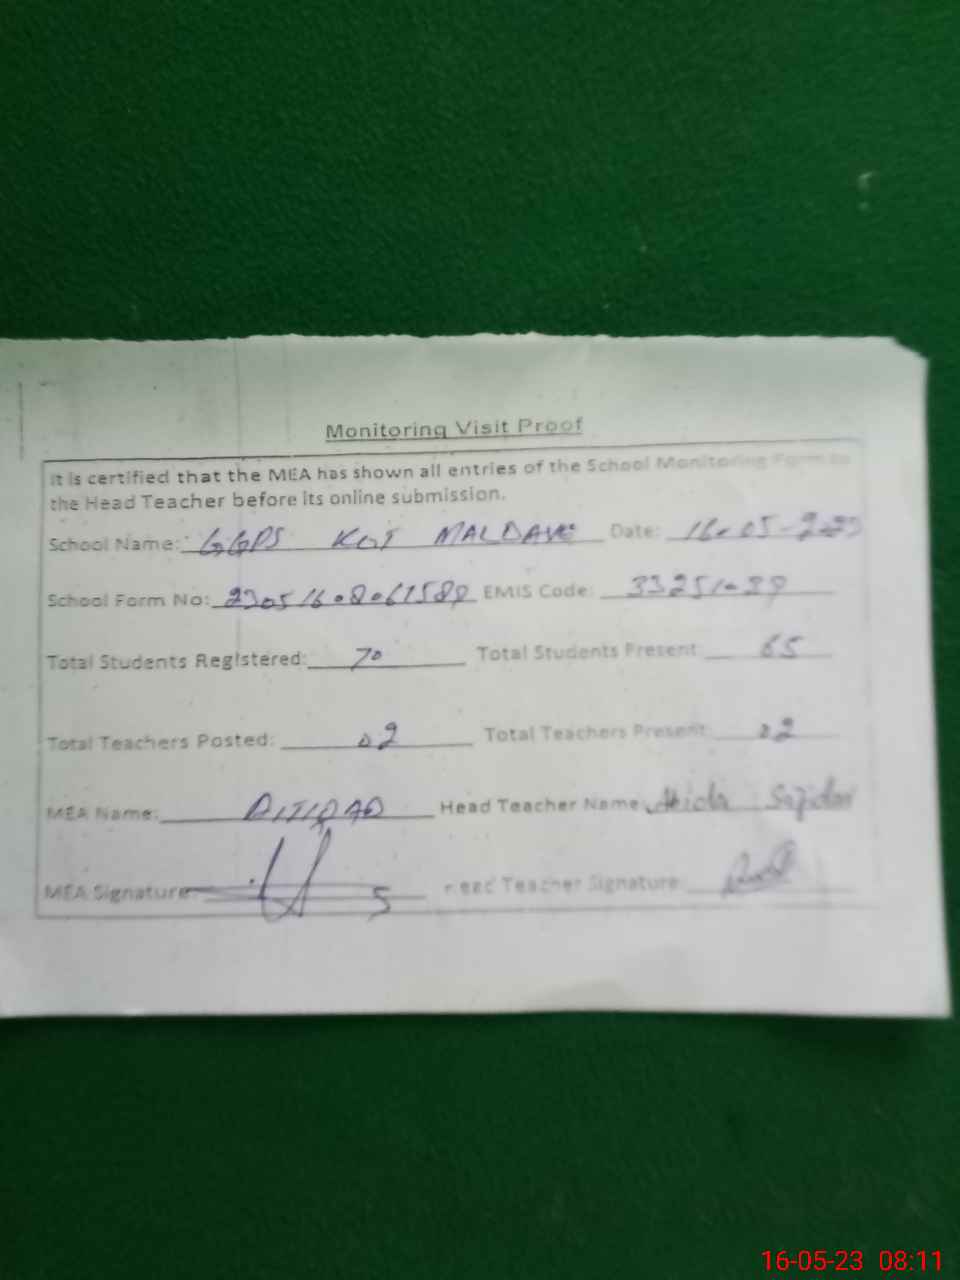 Monitoring Visit Proof
It is certified that the MEA has shown all entries of the School Monitoring Form to
the Head Teacher before its online submission.
School Name: GGPS KOT Date: 16-05-2023
School Form No: EMIS Code:
Total Students Registered: 70 Total Students Present: 65
Total Teachers Posted: 02 Total Teachers Present: 02
MEA Name: Head Teacher Name:
MEA Signature: Head Teacher Signature:
16-05-23 08:11